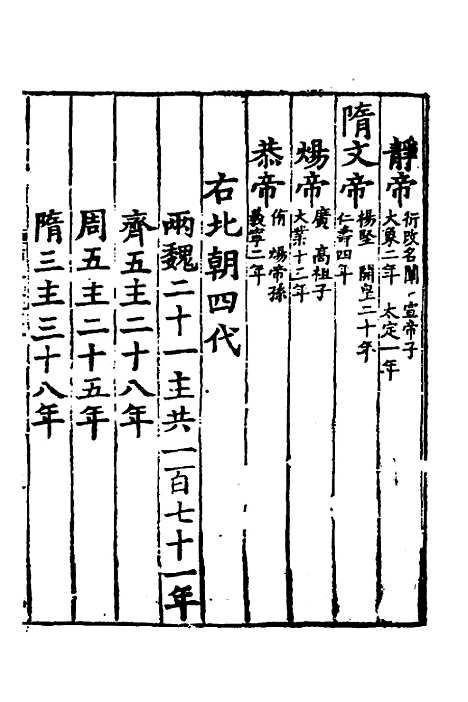 靜帝 衍改名闡 宣帝子
大象二年 太定一年
隋文帝 楊堅 開皇二十年
仁壽四年
煬帝 廣 高祖子
大業十三年
恭帝 侑 煬帝孫
義寧二年
右北朝四代
兩魏二十一主共一百七十一年
齊五主二十八年
周五主二十五年
隋三主三十八年